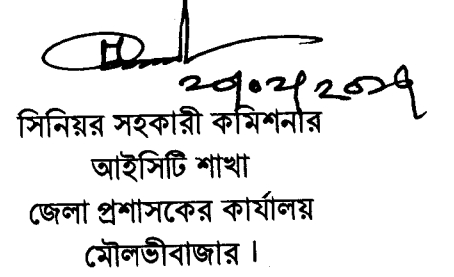 সিনিয়র সহকারী কমিশনার
আইসিটি শাখা
জেলা প্রশাসকের কার্যালয়
মৌলভীবাজার।